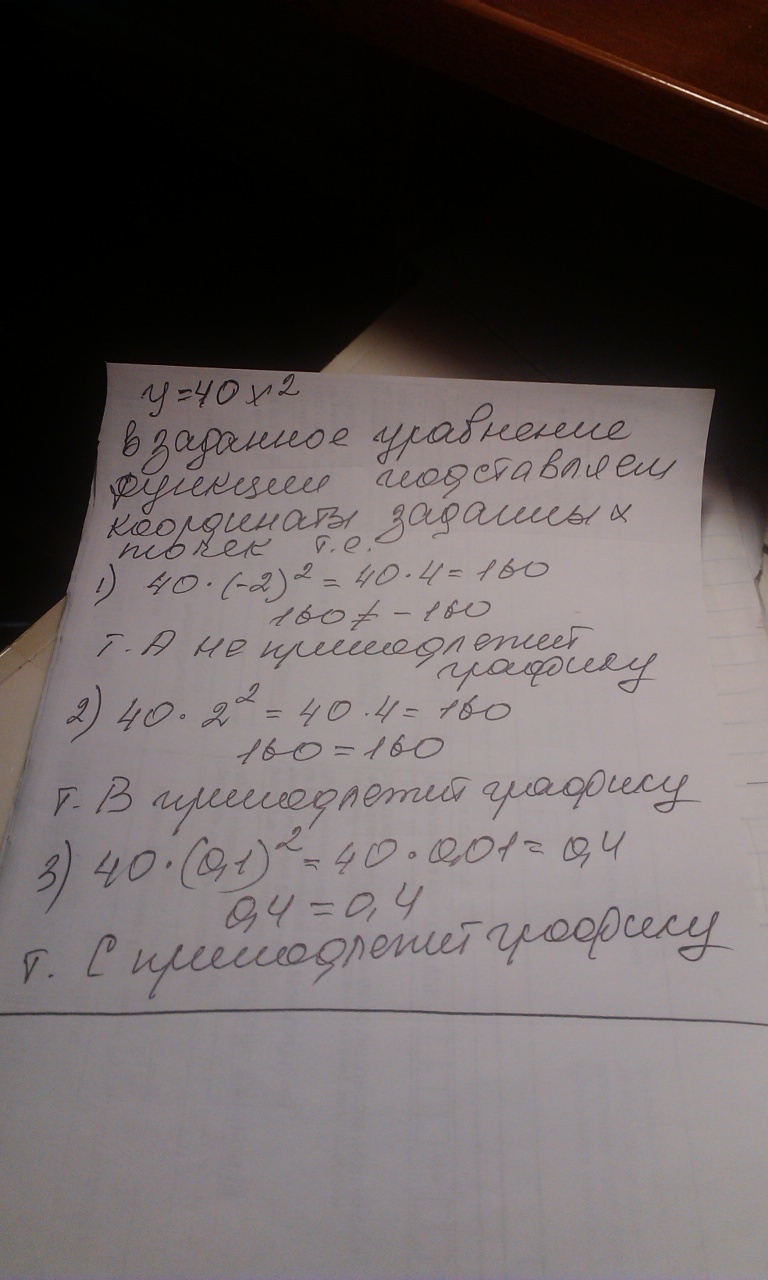 y=40x²
в заданное уравнение
функции подставляем
координаты заданных
точек т.е.
1) 40·(-2)² = 40·4 = 160
160 ≠ -160
т. А не принадлежит
графику
2) 40·2² = 40·4 = 160
160 = 160
т. В принадлежит графику
3) 40·(0,1)² = 40·0,01 = 0,4
0,4 = 0,4
т. С принадлежит графику